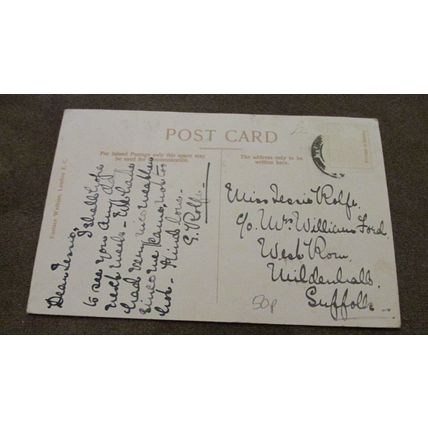 POST CARD
For Inland Postage only this space may
be used for communication.
The address only to be
written here.
Dear Jessie,
I shall
to see you
next week - We have
had very nice weather
since we came, not
hot - Kind love
E. Rolfe
Miss Jessie Rolfe.
c/o Mrs Williams Ford.
West Row,
Mildenhall,
Suffolk.
50p